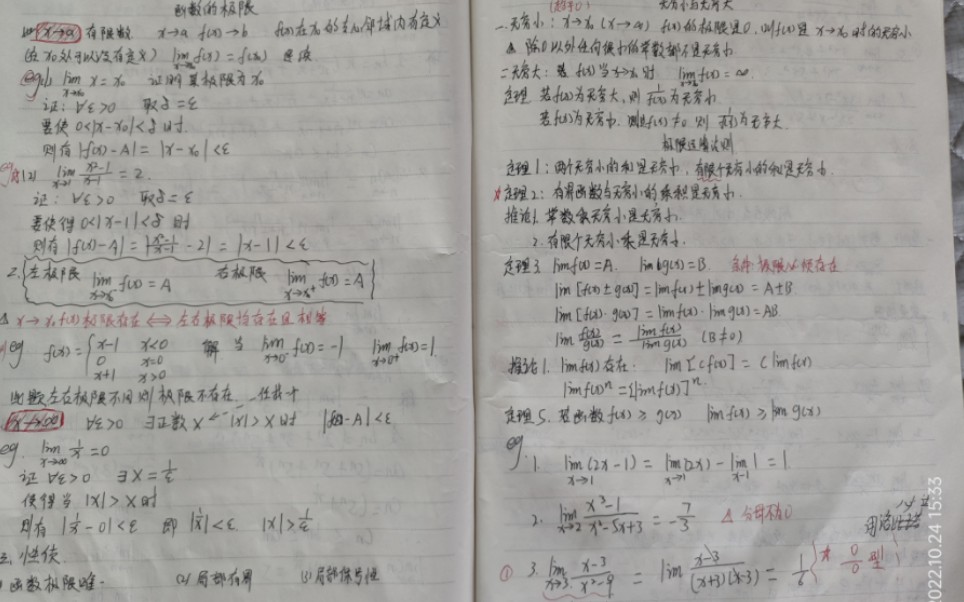 函数的极限
(1) x→a 有限数 x→a f(x)→b f(x)在x₀的去心邻域内有定义
(在x₀处可以没有定义) lim x→x₀ f(x)=f(x₀) 连续
eg(1) lim x→x₀ x=x₀ 证明其极限为x₀
证: ∀ε>0 取δ=ε
要使 0<|x-x₀|<δ 时
则有 |f(x)-A|=|x-x₀|<ε
(2) lim x→1 x²-1/x-1 = 2.
证: ∀ε>0 取δ=ε
要使得 0<|x-1|<δ 时
则有 |f(x)-A|=|x²-1/x-1 - 2|=|x-1|<ε
2. 左极限 lim x→x₀⁻ f(x)=A 右极限 lim x→x₀⁺ f(x)=A
△ x→x₀ f(x)极限存在 ⟺ 左右极限均存在且相等
eg f(x)={ x-1 x<0 解 当 lim x→0⁻ f(x)=-1 lim x→0⁺ f(x)=1
0 x=0
x+1 x>0
函数左右极限不同则极限不存在
x→∞ ∀ε>0 ∃正数X |x|>X时 |f(x)-A|<ε
eg. lim x→∞ 1/x=0
证 ∀ε>0 ∃X=1/ε
使得当 |x|>X时
则有 |1/x-0|<ε 即 |1/x|<ε |x|>1/ε
三. 性质
函数极限唯一 (2) 局部有界 (3) 局部保号性
无穷小与无穷大
一.无穷小: x→x₀ (x→∞) f(x)的极限是0, 则f(x)是x→x₀时的无穷小
△ 除0以外任何很小的常数都不是无穷小
二.无穷大: 若f(x)当x→x₀时 lim x→x₀ f(x)=∞.
定理 若f(x)为无穷大, 则 1/f(x) 为无穷小
若f(x)为无穷小. 则且f(x)≠0 则 1/f(x) 为无穷大.
极限运算法则
定理1: 两个无穷小的和是无穷小. 有限个无穷小的和是无穷小.
定理2: 有界函数与无穷小的乘积是无穷小.
推论1. 常数乘无穷小是无穷小.
2. 有限个无穷小乘是无穷小.
定理3 limf(x)=A. limg(x)=B. 极限必须存在
lim[f(x)±g(x)]=limf(x)±limg(x)=A±B
lim[f(x)·g(x)]=limf(x)·limg(x)=AB
lim f(x)/g(x) = limf(x)/limg(x) (B≠0)
推论1. limf(x)存在: lim[cf(x)]=Climf(x)
limf(x)ⁿ=[limf(x)]ⁿ.
定理5. 若函数f(x)≥g(x) limf(x)≥limg(x)
eg.
1. lim x→1 (2x-1)=lim x→1 (2x)-lim x→1 1=1
2. lim x→2 x³-1/x²-5x+3 = -7/3 △ 分母不为0
3. lim x→3 x-3/x²-9 = lim x-3/(x+3)(x-3) = 1/6 0/0 型
2022.10.24 15:33